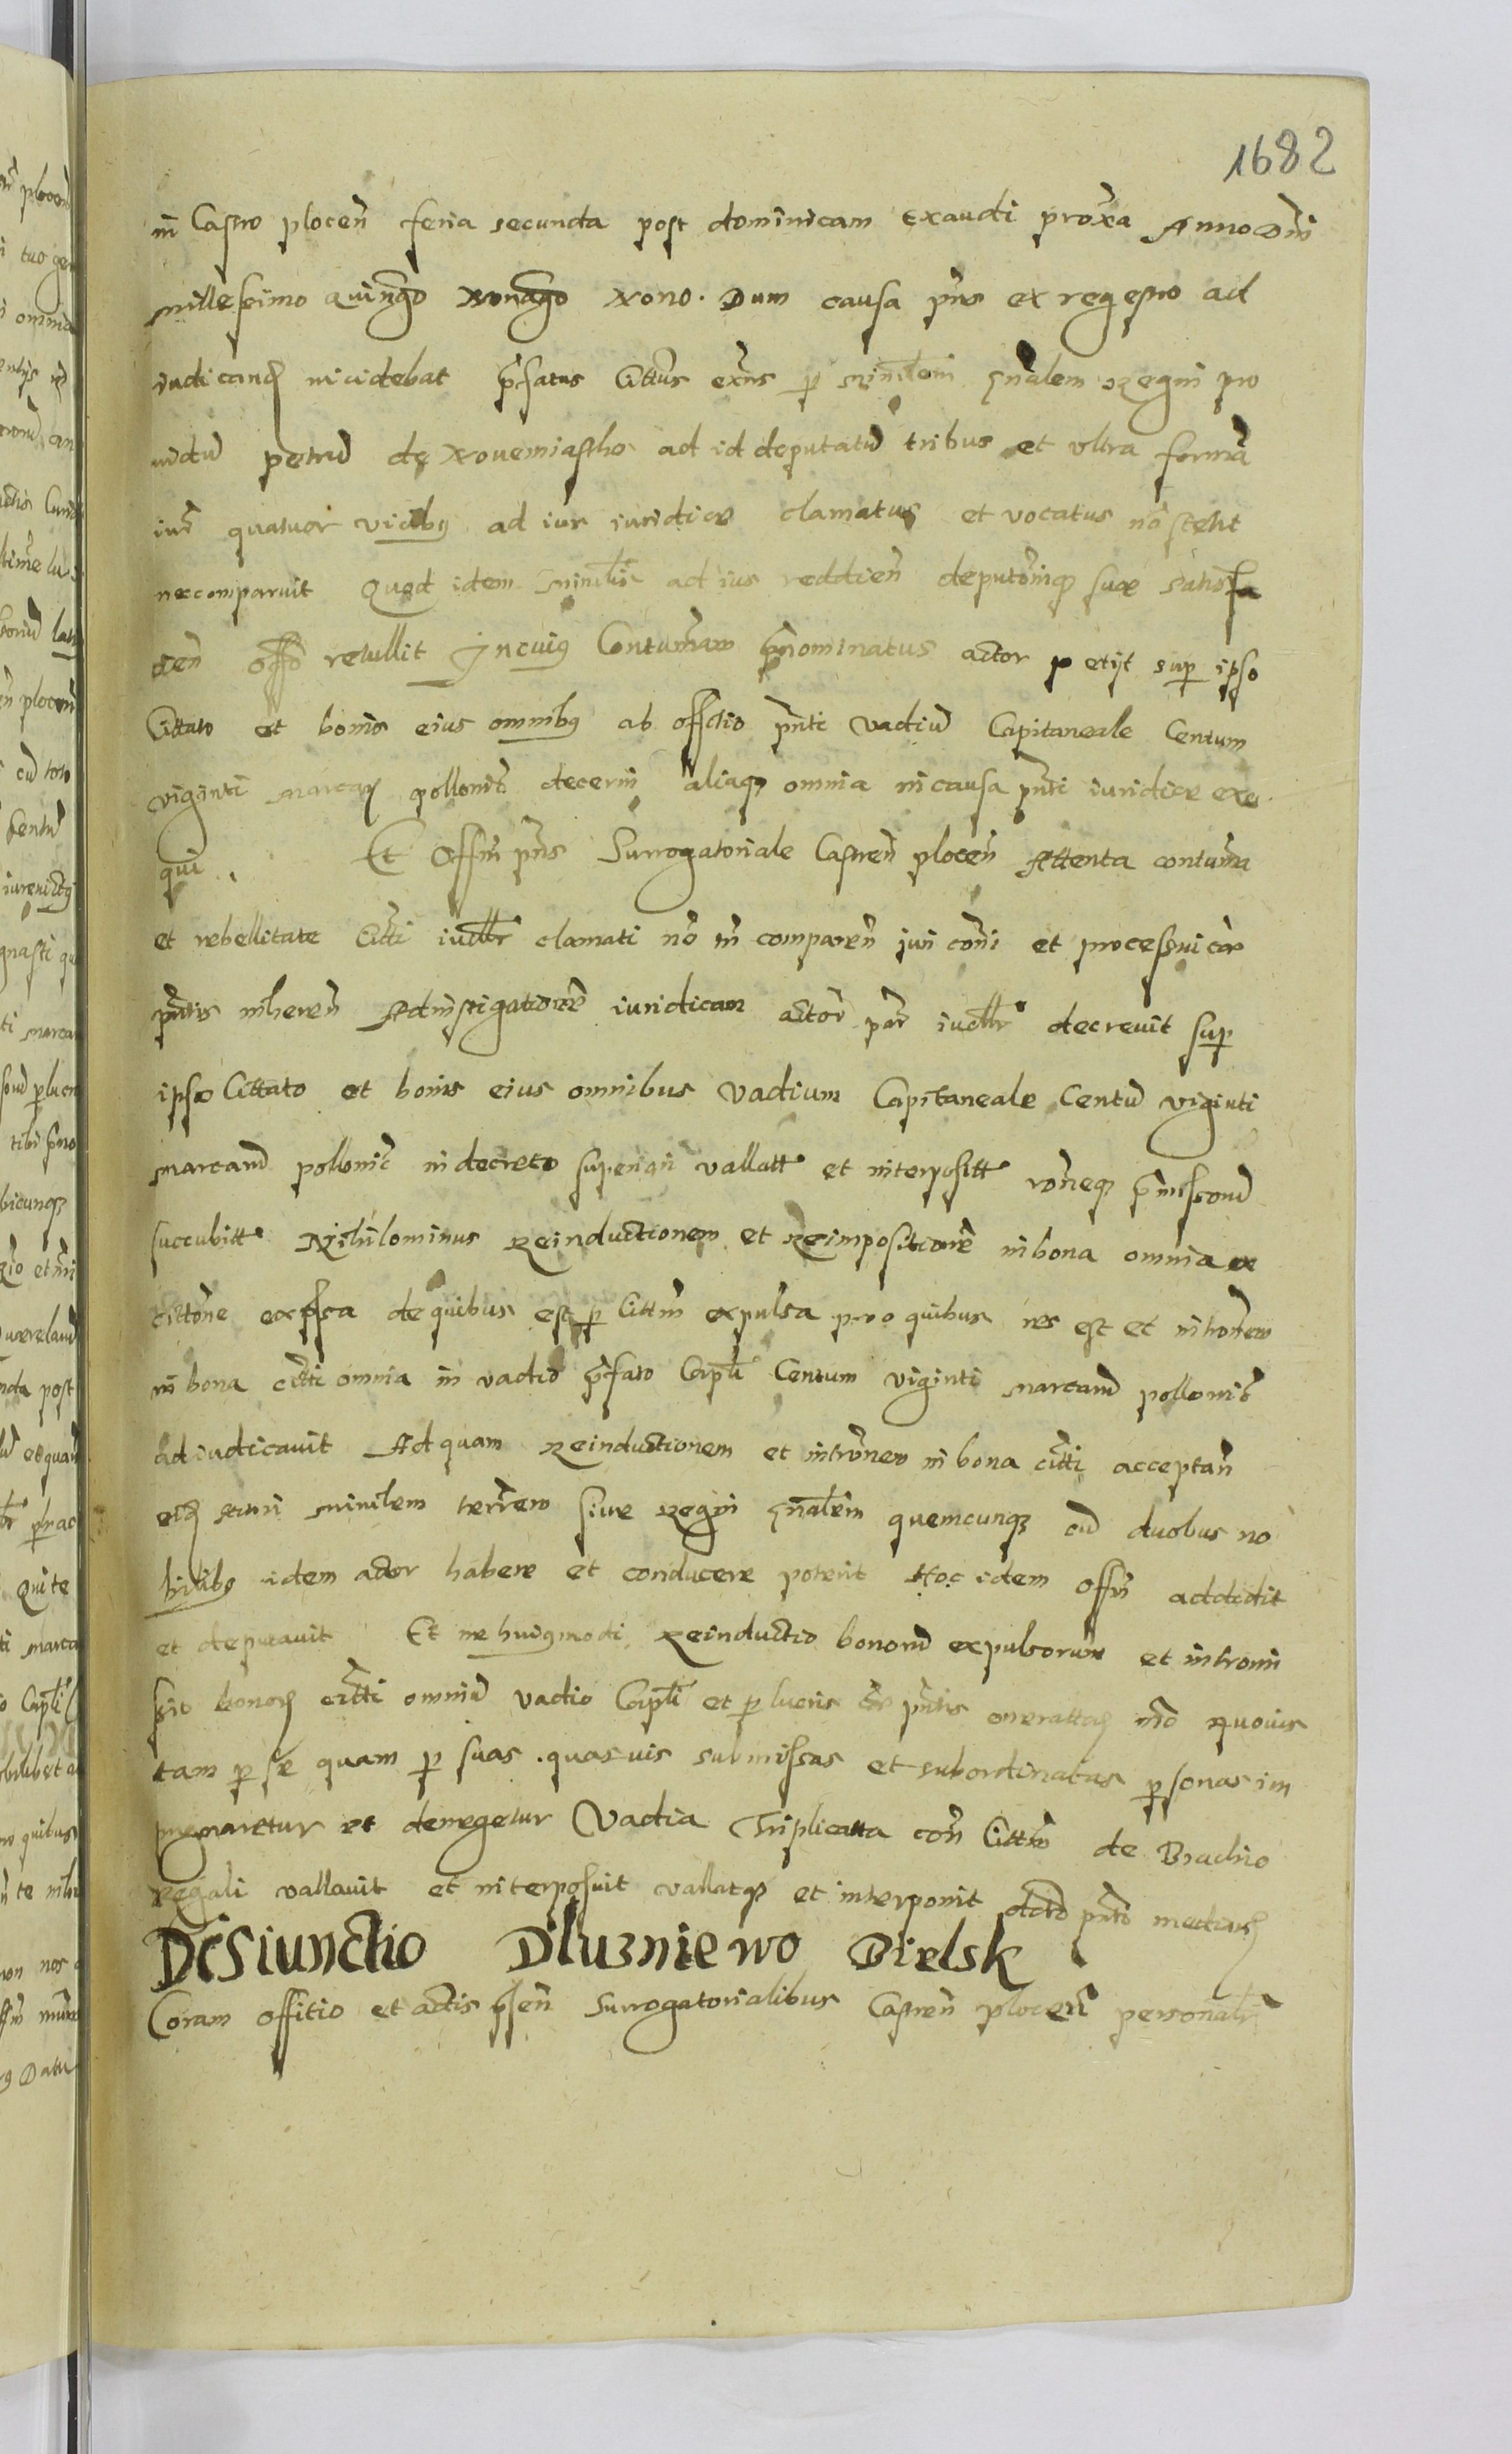 1682
in Castro plocen̄ feria secunda post dominicam Exaudi prox̄a Anno Dn̄i
millessimo quing̃o Nonag̃o Nono. Dum causa pn̄s ex regestro ad
iudicand incidebat p̄fatus Cittus exn̄s p ministem gn̄alem Regni pro
uidū petrū de Nouemiastho ad id deputatū tribus et vltra formā
iur̄ quatuor vicibɜ ad iur iuridice clamatus et vocatus nō stetit
nec comparuit Quod idem minist̄r ad ius reddien̄ deputōniqɜ suæ satisfa
cien̄ offō retullit In cuiɜ Contum̄am p̄nominatus actor petijt sup ipso
Cittato et bonis eius omnibɜ ab officio pn̄ti vadiū Capitaneale Centum
viginti marcaɽ pollonic̄ decerni aliaqɜ omnia in causa pn̄ti iuridice exe
qui. Et Offm̄ pn̄s Surrogatoriale Castren̄ plocen̄ Attenta contum̄a
et rebellitate Citti iud̄lr clamati nō in comparen̄ iuri com̄i et processui cār
pn̄tis inheren̄ Ad instigationē iuridicam actor̄ par̄ iud̄lr decrevit sup
ipso Cittato et bonis eius omnibus Vadium Capitaneale Centū viginti
marcarū pollonic̄ in decreto superiori vallatt et interpositt rōneqɜ p̄missorū
succubitt Nihilominus Reinductionem et Reimpositionē in bona omnia ex
cittōne expssa de quibus est p Cittm̄ expulsa pro quibus res est et introm̄em
in bona citti omnia in vadio p̄fato Capl̄i Centum viginti marcarū pollonic̄
adiudicauit Ad quam Reinductionem et intrōmem in bona citti acceptan̄
eid actori minist̄em terr̄em siue Regni gn̄alem quemcunqɜ cū duobus no
bilibɜ idem actor habere et conducere poterit Hoc idem offm̄ addidit
et deputauit Et ne huiɜmodi Reinductio bonorū expulsorum et intromi
ssio bonoɽ citti omniū vadio Capl̄i et p lucris cār pn̄tis onerattaɽ mō quouis
tam p se quam p suas quasuis submissas et subordinatas psonas im
pugnaretur et denegetur Vadia Triplicatta con̄ Cittm̄ de Brachio
regali vallauit et interposuit vallatqɜ et interponit dctō pn̄ti median
Disiunctio Dluzniewo Bielsk
Coram offitio et actis p̄sen̄ Surrogatorialibus Castren̄ plocen̄ personalr̄